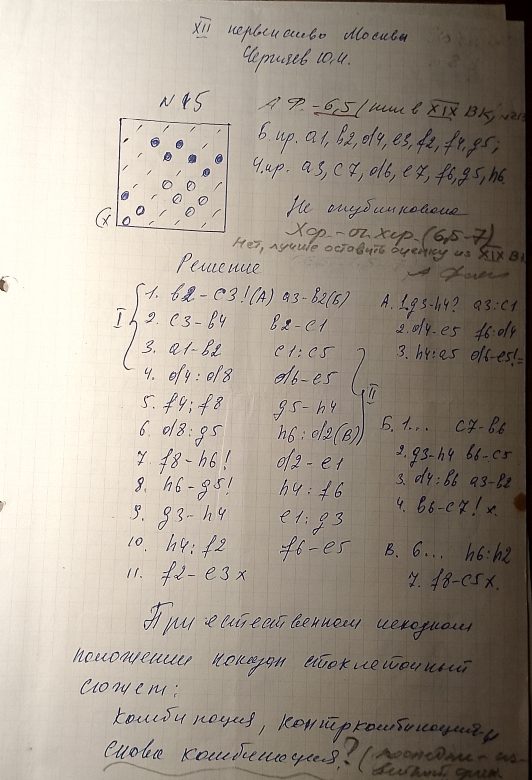 XII первенство Москвы
Черняев Ю.Н.
N 15
А Ф. - 6,5 (или в XIX ВК,
Б. пр. a1, b2, d4, e3, f2, f4, g5;
Ч. пр. a3, c7, d6, e7, f6, g5, h6
Не опубликована
Хор. - оч. хор. (6,5-7)
Нет, лучше оставить оценку из XIX ВК
(x)
Решение
I
1. b2-c3! (А) a3-b2(Б)
2. c3-b4 b2-c1
3. a1-b2 c1:c5
4. d4:d8 d6-e5
5. f4:f8 g5-h4
6. d8:g5 h6:d2(В)
7. f8-h6! d2-e1
8. h6-g5! h4:f6
9. g3-h4 e1:g3
10. h4:f2 f6-e5
11. f2-e3 x
II
А. 1. g3-h4? a3:c1
2. d4-e5 f6:d4
3. h4:a5 d6-e5!=
Б. 1... c7-b6
2. g3-h4 b6-c5
3. d4:b6 a3-b2
4. b6-c7! x.
В. 6... h6:h2
7. f8-c5 x.
При естественном исходном
положении показан стоклеточный
сюжет:
комбинация, контркомбинация и
снова комбинация?